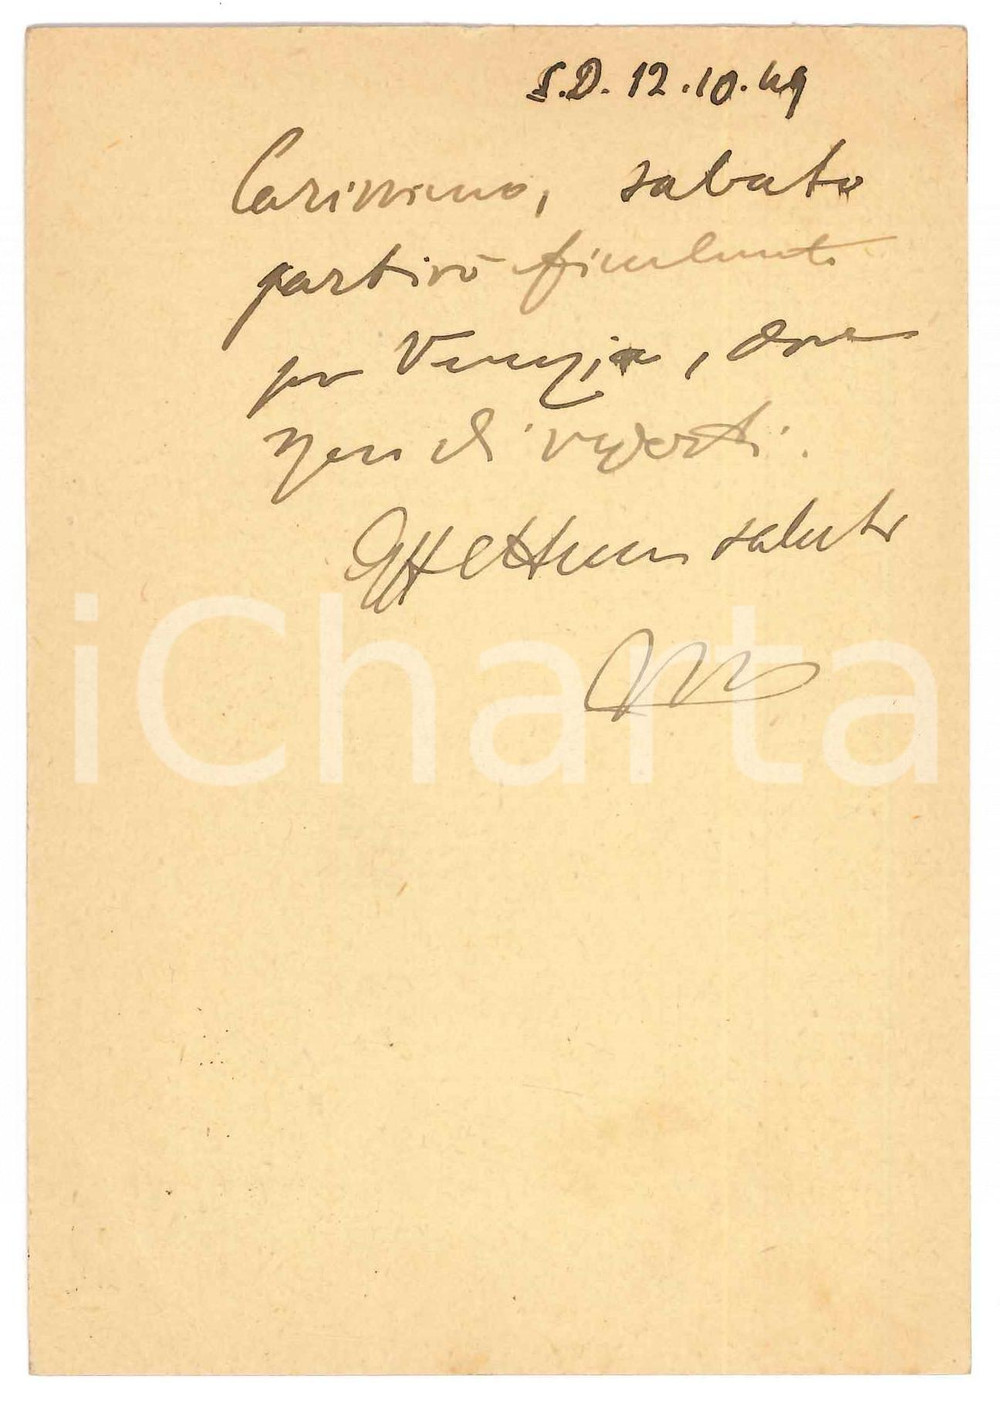 S.D. 12.10.49
Carissimo, sabato
partirò finalmente
per Venezia, dove
spero di vederti.
Affettuosi saluti
iCharta